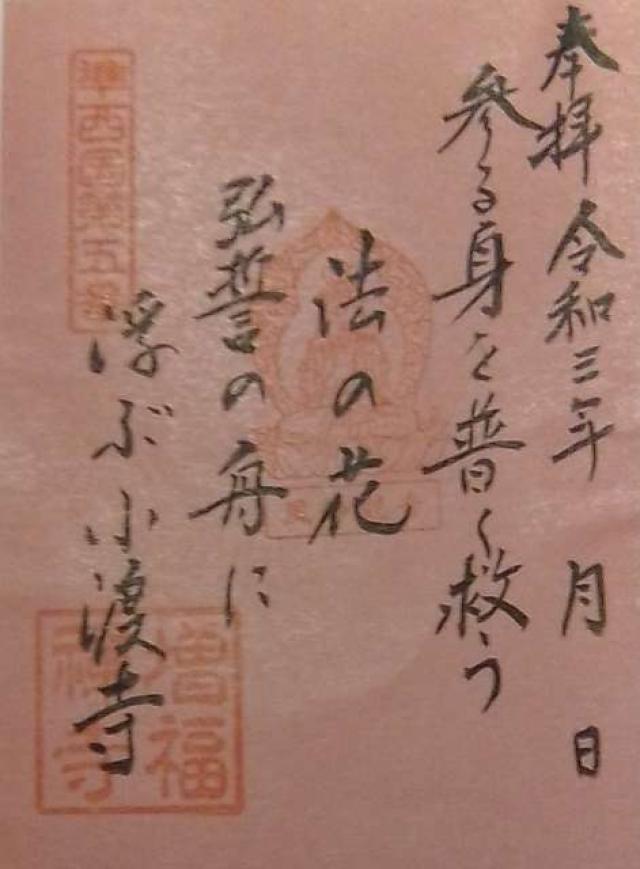 奉拝 令和三年 月 日
参る身を普く救う
法の花
弘誓の舟に
浮ぶ小渡寺
準西国第五番
増福
禅寺